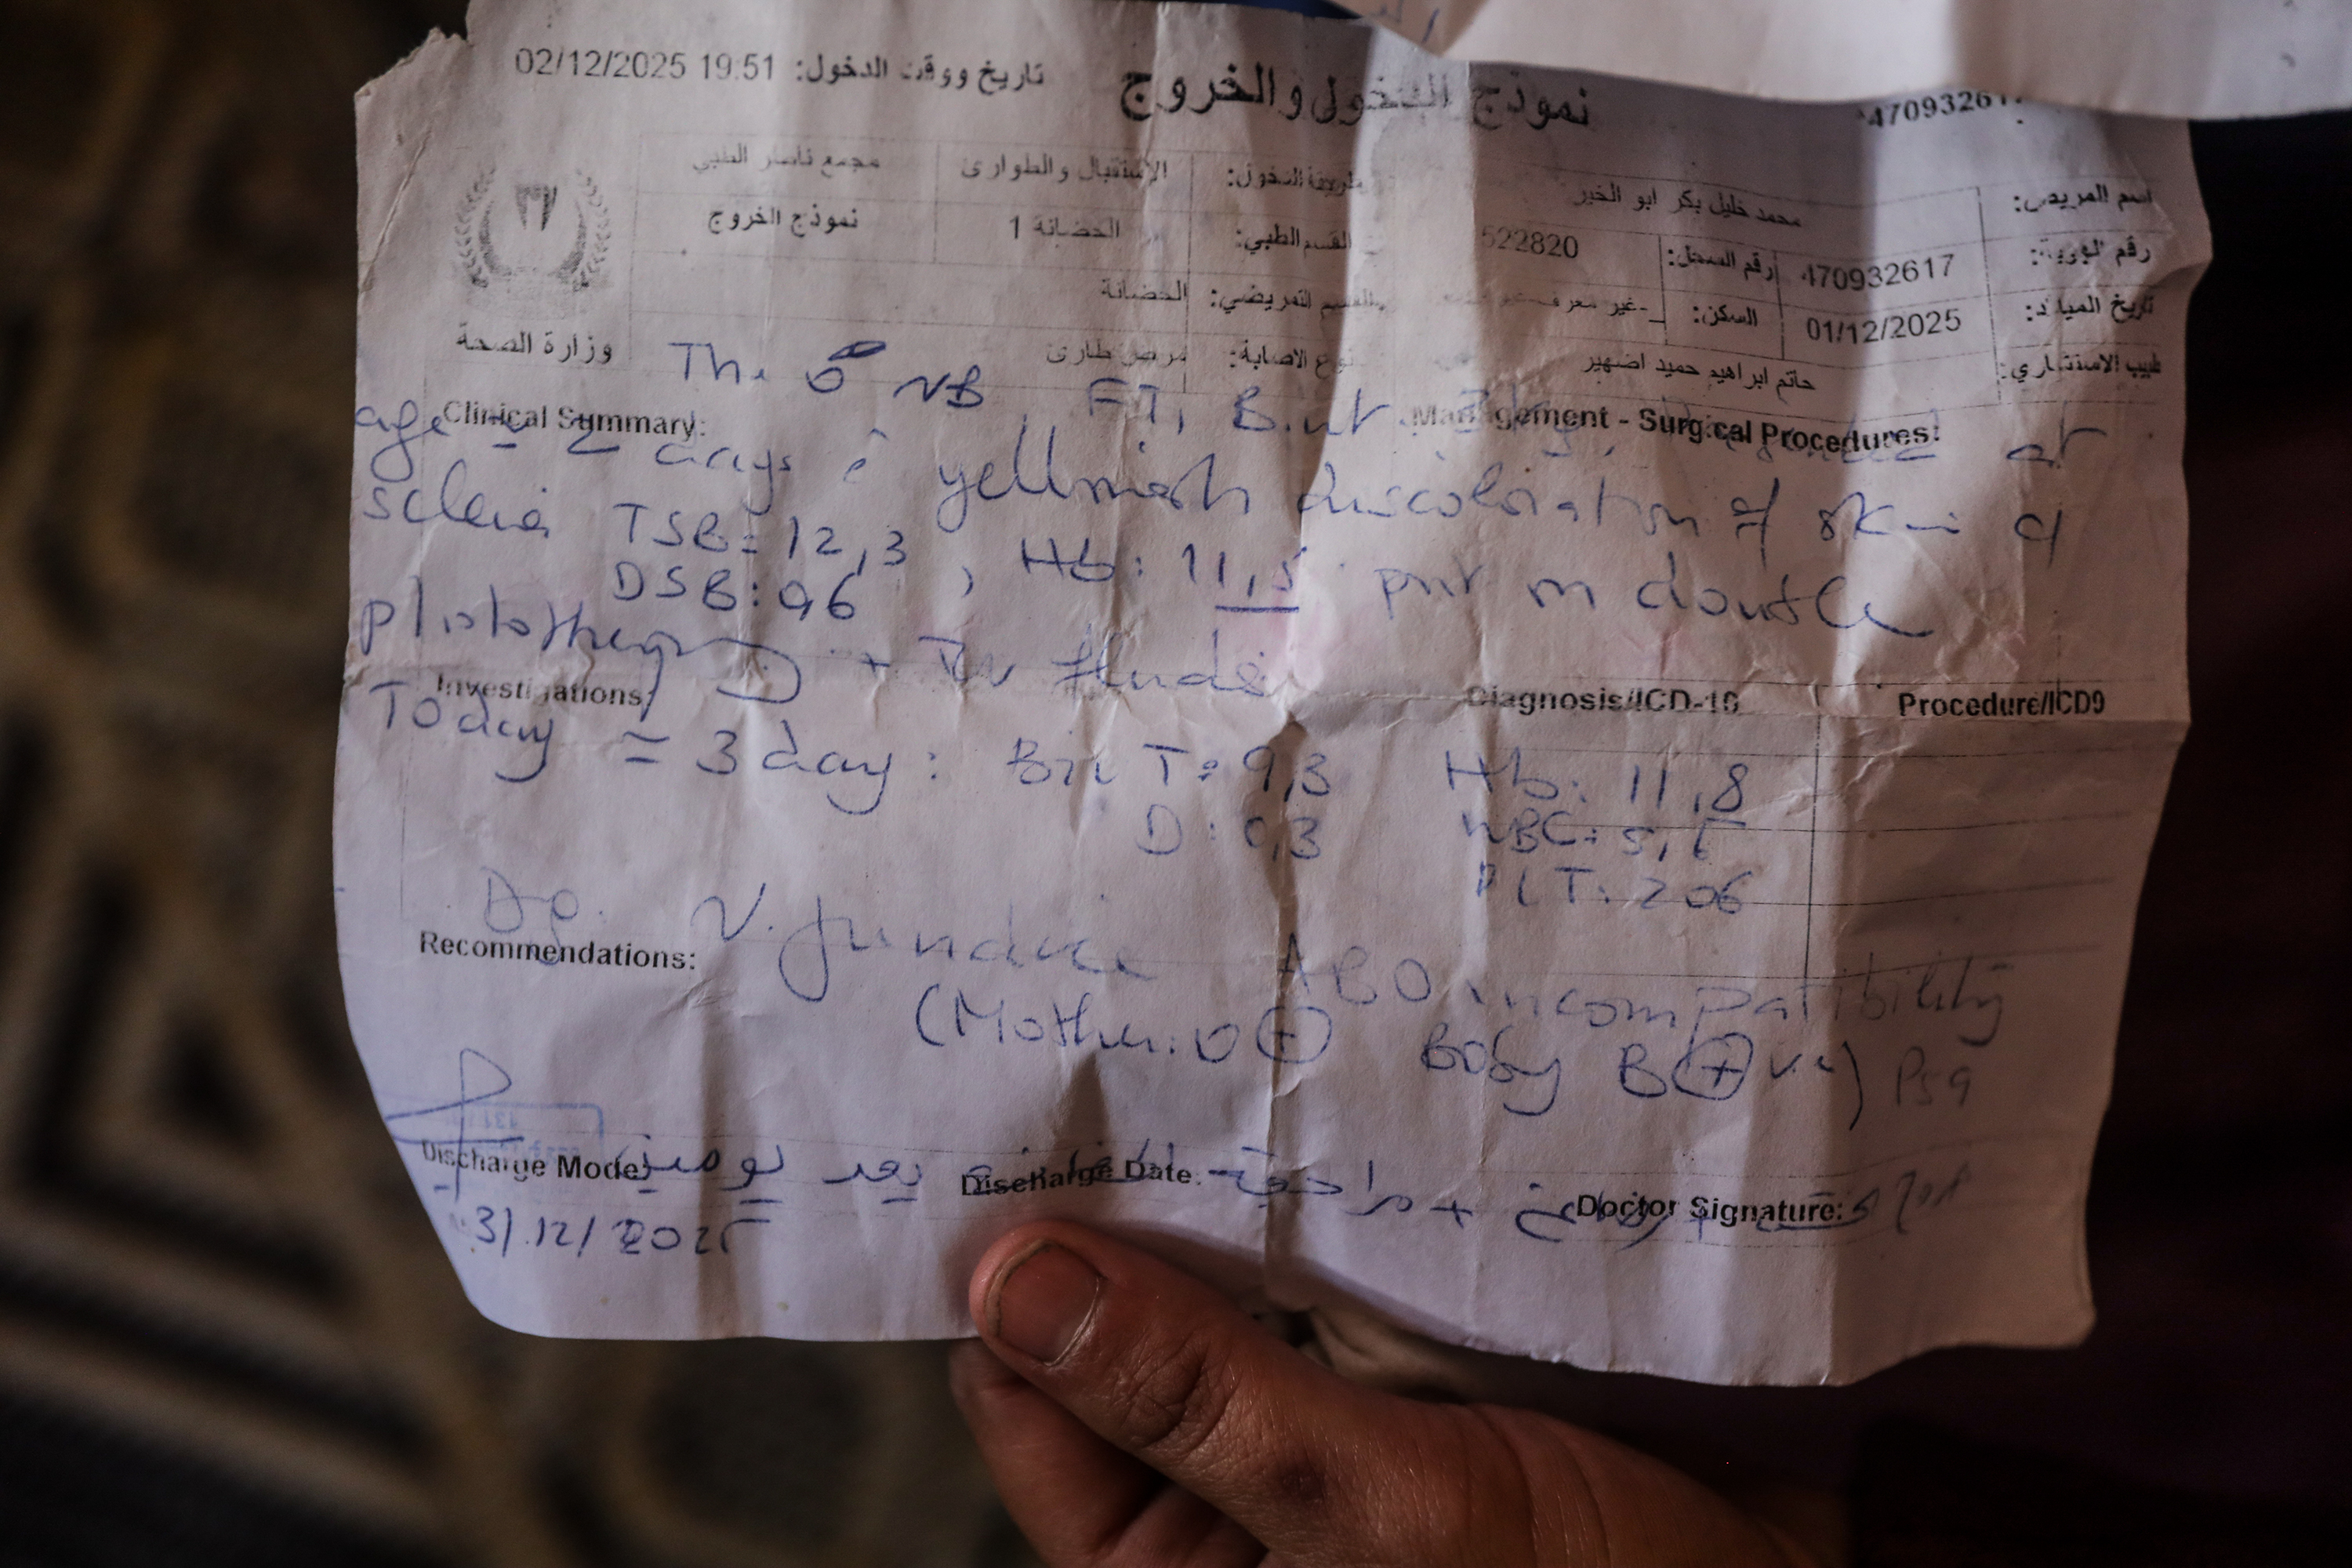 نموذج الدخول والخروج
تاريخ ووقت الدخول: 02/12/2025 19:51
اسم المريض: محمد خليل بكر ابو الخير
طريقة الدخول: الإستقبال والطوارئ مجمع ناصر الطبي
رقم الهوية: 470932617 رقم السجل: 522820
القسم الطبي: الحضانة 1 نموذج الخروج
تاريخ الميلاد: 01/12/2025 السكن: غير معرف
القسم التمريضي: الحضانة
الطبيب الاستشاري: حاتم ابراهيم حميد اضهير
نوع الاصابة: مرض طارئ
وزارة الصحة
The ♂ NB, FT, B.wt at
Clinical Summary: Management - Surgical Procedures:
age = 2 days yellowish discoloration of skin
sclera TSB = 12,3, Hb: 11,5 put on double
DSB: 0,6
phototherapy + IV fluids
Investigations: Diagnosis/ICD-10 Procedure/ICD9
Today = 3 day: Bil T: 9,3 Hb: 11,8
D: 0,3 WBC:
PLT: 206
N. Jundice ABO incompatibility
Recommendations:
(Mother: O + Baby B + ve)
Discharge Mode: Discharge Date: Doctor Signature:
+ مراجعة بعد يومين
3/12/2025